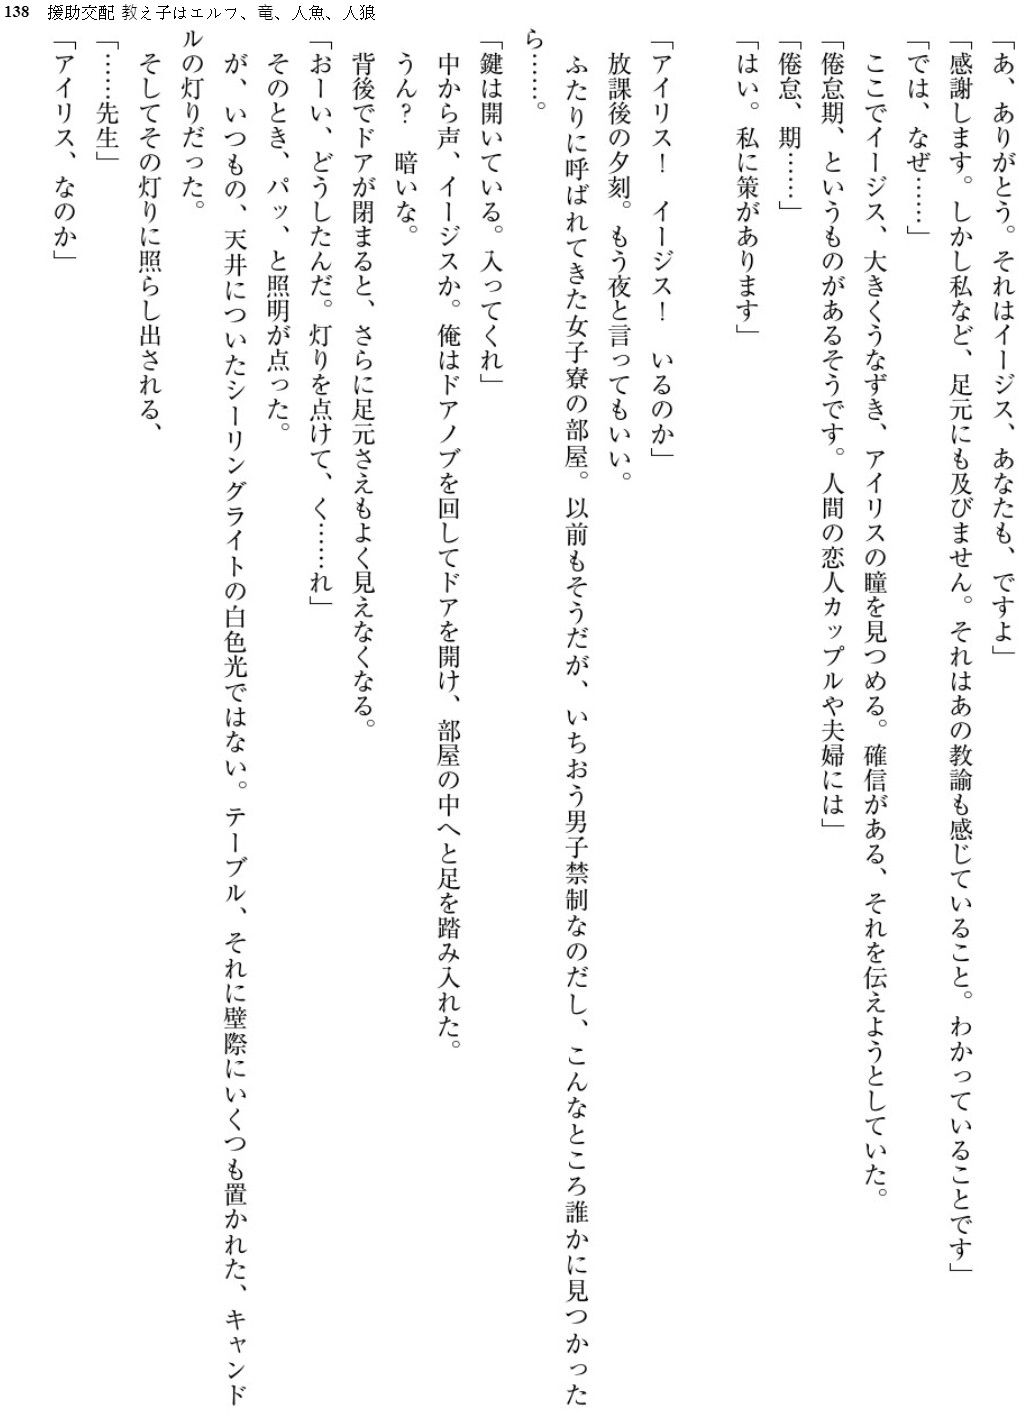 138 援助交配 教え子はエルフ、竜、人魚、人狼
「あ、ありがとう。それはイージス、あなたも、ですよ」
「感謝します。しかし私など、足元にも及びません。それはあの教諭も感じていること。わかっていることです」
「では、なぜ……」
ここでイージス、大きくうなずき、アイリスの瞳を見つめる。確信がある、それを伝えようとしていた。
「倦怠期、というものがあるそうです。人間の恋人カップルや夫婦には」
「倦怠、期……」
「はい。私に策があります」
「アイリス！　イージス！　いるのか」
放課後の夕刻。もう夜と言ってもいい。
ふたりに呼ばれてきた女子寮の部屋。以前もそうだが、いちおう男子禁制なのだし、こんなところ誰かに見つかった
ら……。
「鍵は開いている。入ってくれ」
中から声、イージスか。俺はドアノブを回してドアを開け、部屋の中へと足を踏み入れた。
うん？　暗いな。
背後でドアが閉まると、さらに足元さえもよく見えなくなる。
「おーい、どうしたんだ。灯りを点けて、く……れ」
そのとき、パッ、と照明が点った。
が、いつもの、天井についたシーリングライトの白色光ではない。テーブル、それに壁際にいくつも置かれた、キャンド
ルの灯りだった。
そしてその灯りに照らし出される、
「……先生」
「アイリス、なのか」